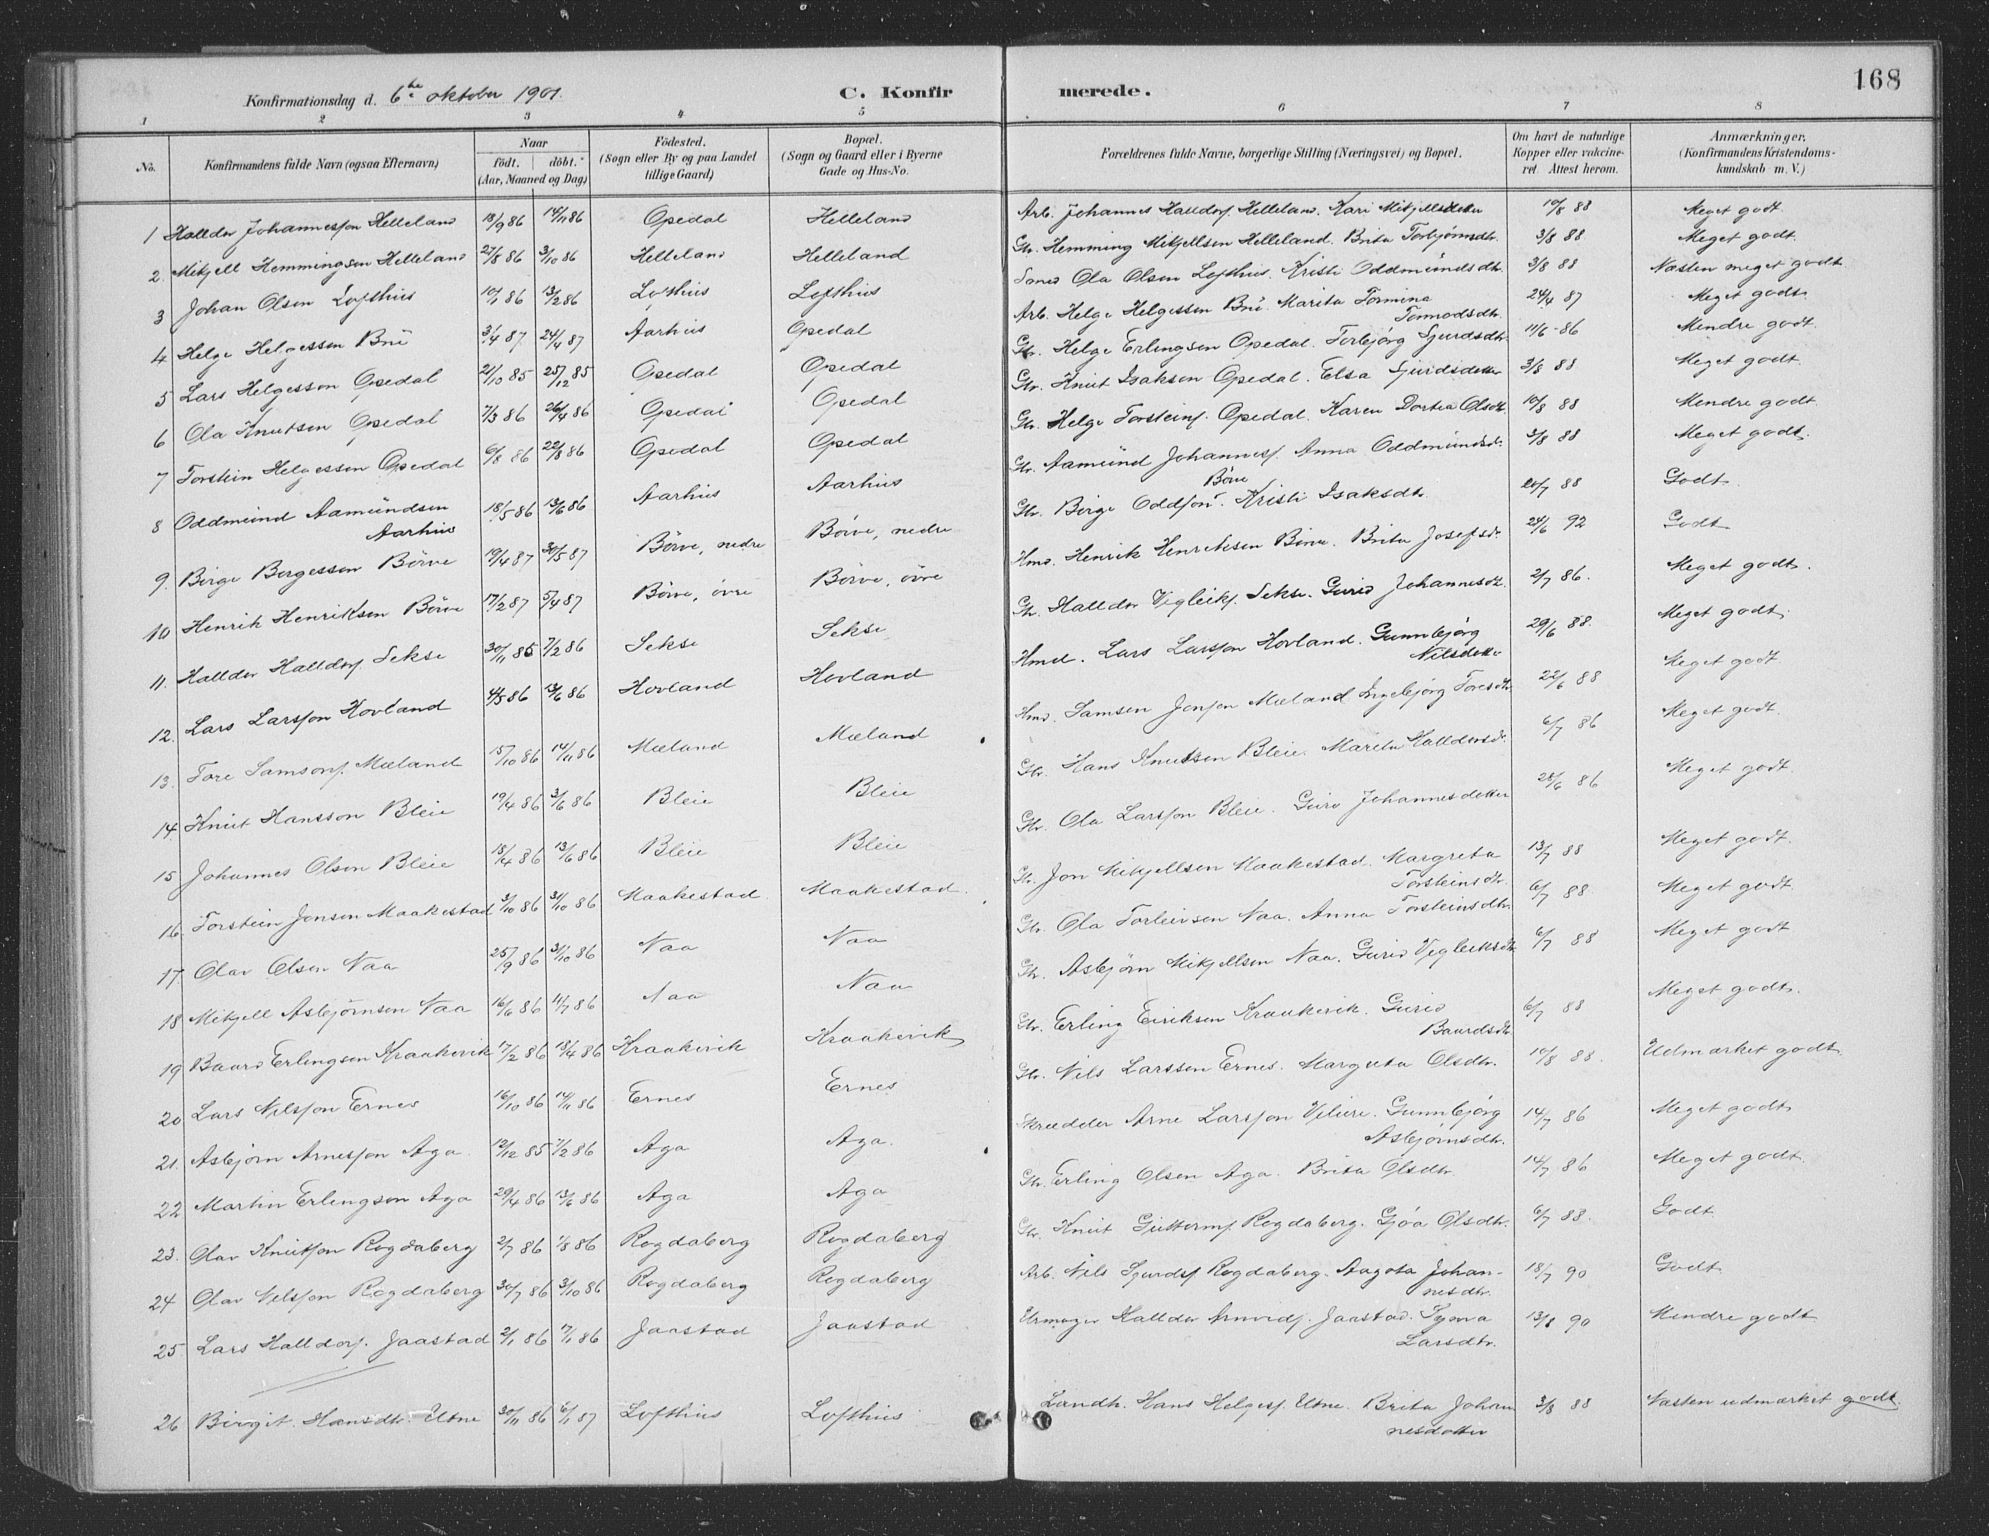 168
Konfirmationsdag d. 6te oktober 1901. C. Konfirmerede.
1 2 3 4 5 6 7 8
No. Konfirmandens fulde Navn (ogsaa Efternavn) Naar födt. döbt. (Aar, Maaned og Dag) Födested. (Sogn eller By og paa Landet tillige Gaard) Bopæl. (Sogn og Gaard eller i Byerne Gade og Hus-No. Forældrenes fulde Navne, borgerlige Stilling (Næringsvei) og Bopæl. Om havt de naturlige Kopper eller vakcineret. Attest herom. Anmærkninger, (Konfirmandens Kristendomskundskab m. V.)
1 Halldor Johannesson Helleland 18/9 86 14/11 86 Opedal Helleland Arb. Johannes Halldorf. Helleland. Kari Mikjellsdotter 10/8 88 Meget godt.
2. Mikjell Hemmingson Helleland 27/8 86 3/10 86 Helleland Helleland Gbr. Hemming Mikjellsen Helleland. Brita Torbjørnsdtr. 3/8 88 Meget godt.
3 Johan Olsen Lofthus 10/1 86 13/2 86 Lofthus Lofthus Ola Olsen Lofthus. Kristi Oddmundsdtr. 3/8 88 Næsten meget godt
4 Helge Helgesson Brü 3/4 87 24/4 87 Aarhus Opedal Arb. Helge Helgesson Brü. Marita Tormina Tormodsdtr. 24/4 87 Meget godt.
5 Lars Helgesson Opedal 21/10 85 25/12 85 Opedal Opedal Gbr. Helge Erlingsen Opedal. Torbjørg Sjurdsdtr. 11/6 86 Mindre godt.
6 Ola Knutson Opedal 7/3 86 26/4 86 Opedal Opedal Gbr. Knut Isaksen Opedal. Elsa Sjurdsdotter 3/8 88 Meget godt.
7 Torstein Helgesson Opedal 6/8 86 22/8 86 Opedal Opedal Gbr. Helge Torsteinf. Opedal. Karen Dortea Olsdtr. 10/8 88 Mendre godt.
8 Oddmund Aamundsen Aarhus 18/5 86 13/6 86 Aarhus Aarhus Gbr. Aamund Johannesf. Anna Oddmundsdr. 3/8 88 Meget godt.
9. Børge Børgesson Börve 19/4 87 30/5 87 Börve, nedre Börve, nedre Gbr. Børge Oddson Börve. Kristi Isaksdtr. 20/7 88 Godt.
10 Henrik Henriksen Börve 17/2 87 5/4 87 Börve, övre Börve, övre Hmd. Henrik Henriksen Börve. Brita Josefsdr. 24/6 92 Godt
11. Halldor Halldorf. Sekse 30/11 85 7/2 86 Sekse Sekse Gbr. Halldor Vigleikf. Sekse. Gurid Johannesdtr. 2/7 86. Meget godt.
12. Lars Larsson Hovland 4/5 86 13/6 86 Hovland Hovland Hmd. Lars Larsson Hovland. Gunnbjørg Nilsdotter 29/6 88. Meget godt.
13. Tore Samsonf. Mæland 15/10 86 14/11 86 Mæland Mæland Hmd. Samson Jonson Mæland Ingebjørg Toresdtr. 22/6 88 Meget godt
14. Knut Hansson Bleie 19/4 86 3/6 86 Bleie Bleie Gbr. Hans Knutson Bleie. Marita Halldorsdr. 6/7 86 Meget godt.
15 Johannes Olson Bleie 18/4 86 13/6 86 Bleie Bleie Gbr. Ola Larsson Bleie. Guro Johannesdotter 28/6 86 Meget godt.
16. Torstein Jonson Maakestad 3/10 86 31/10 86 Maakestad Maakestad. Gbr. Jon Mikjellsen Maakestad. Margreta Torsteinsdtr. 13/7 88 Meget godt.
17 Olav Olsen Naa 25/9 86 31/10 86 Naa Naa Gbr. Ola Torleivsen Naa. Anna Torsteinsdtr. 6/7 88. Meget godt.
18 Mikjell Asbjørnsen Naa 16/6 86 11/7 86 Naa Naa Gbr. Asbjørn Mikjellsen Naa. Gurid Vigleiksdtr 6/7 88 Meget godt.
19 Baard Erlingsen Kraakevik 17/2 86 18/4 86 Kraakevik Kraakevik Gbr. Erling Eiriksen Kraakevik. Gurid Baardsdtr. 6/7 88 Meget godt.
20 Lars Nilsson Ernes 16/10 86 14/11 86 Ernes Ernes Gbr. Nils Larsson Ernes. Margreta Olsdtr. 10/8 88. Udmærket godt.
21. Asbjørn Arnesson Aga. 12/12 85 7/2 86 Aga Aga. Skrædder Arne Larsson Gunnbjørg Asbjørnsdtr. 14/7 86 Meget godt
22 Martin Erlingson Aga 29/4 86 13/6 86 Aga Aga Gbr. Erling Olsen Aga. Brita Olsdtr. 14/7 86 Meget godt.
23. Olav Knutson Rogdaberg 2/7 86 1/8 86 Rogdaberg Rogdaberg Gbr. Knut Guttormf Rogdaberg. Gjøa Olsdtr. 6/7 88. Godt
24 Olav Nilsson Rogdaberg 30/7 86 3/10 86 Rogdaberg Rogdaberg Arb. Nils Sjurdsf Rogdaberg. Aagota Johannesdtr. 18/7 90 Godt
25 Lars Halldorf. Jaastad 2/1 86 17/1 86 Jaastad Jaastad Urmager Halldor Jaastad. Synva Larsdtr. 13/8 90 Mendre godt
26 Birgit Hansdtr. Utne 30/11 86 6/1 87 Lofthus Lofthus Landh. Hans Helgesf. Utne. Brita Johannesdotter 3/8 88 Næsten udmærket godt.